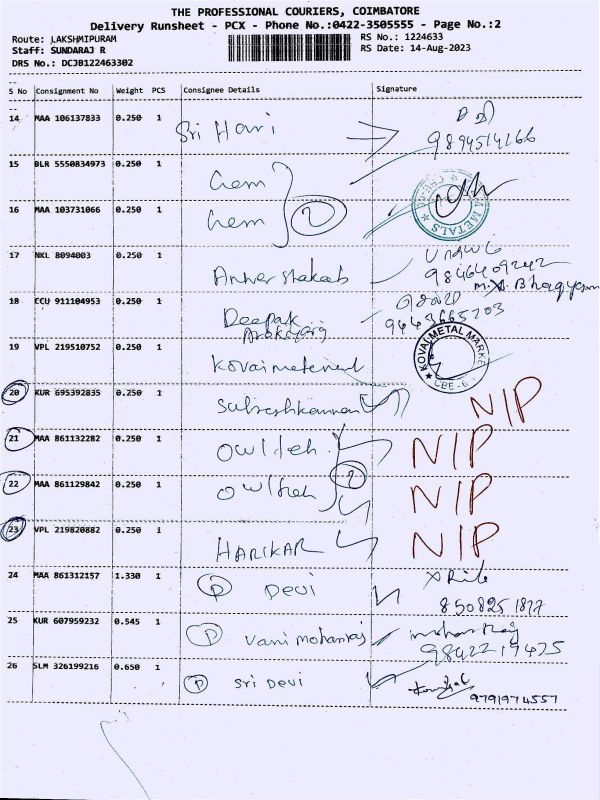 THE PROFESSIONAL COURIERS, COIMBATORE
Delivery Runsheet - PCX - Phone No.:0422-3505555 - Page No.:2
Route: LAKSHMIPURAM RS No.: 1224633
Staff: SUNDARAJ R RS Date: 14-Aug-2023
DRS No.: DCJB122463302
S No Consignment No Weight PCS Consignee Details Signature
14 MAA 106137833 0.250 1 Sri Hari 9894514166
15 BLR 5550834973 0.250 1 hem
16 MAA 103731066 0.250 1 hem 2 METALS
17 NKL 8094003 0.250 1 9846409242
18 CCU 911104953 0.250 1 Deepak 9443665203
19 VPL 219510752 0.250 1 KOVAI METAL MARKE CBE-6
20 KUR 695392835 0.250 1 N/P
21 MAA 861132282 0.250 1 N/P
22 MAA 861129842 0.250 1 2 N/P
23 VPL 219820882 0.250 1 HARIKAR N/P
24 MAA 861312157 1.330 1 P Devi
8508251877
25 KUR 607959232 0.545 1 P Vani mohanraj mohan Raj
9842219475
26 SLM 326199216 0.650 1 P Sri Devi
9791974557